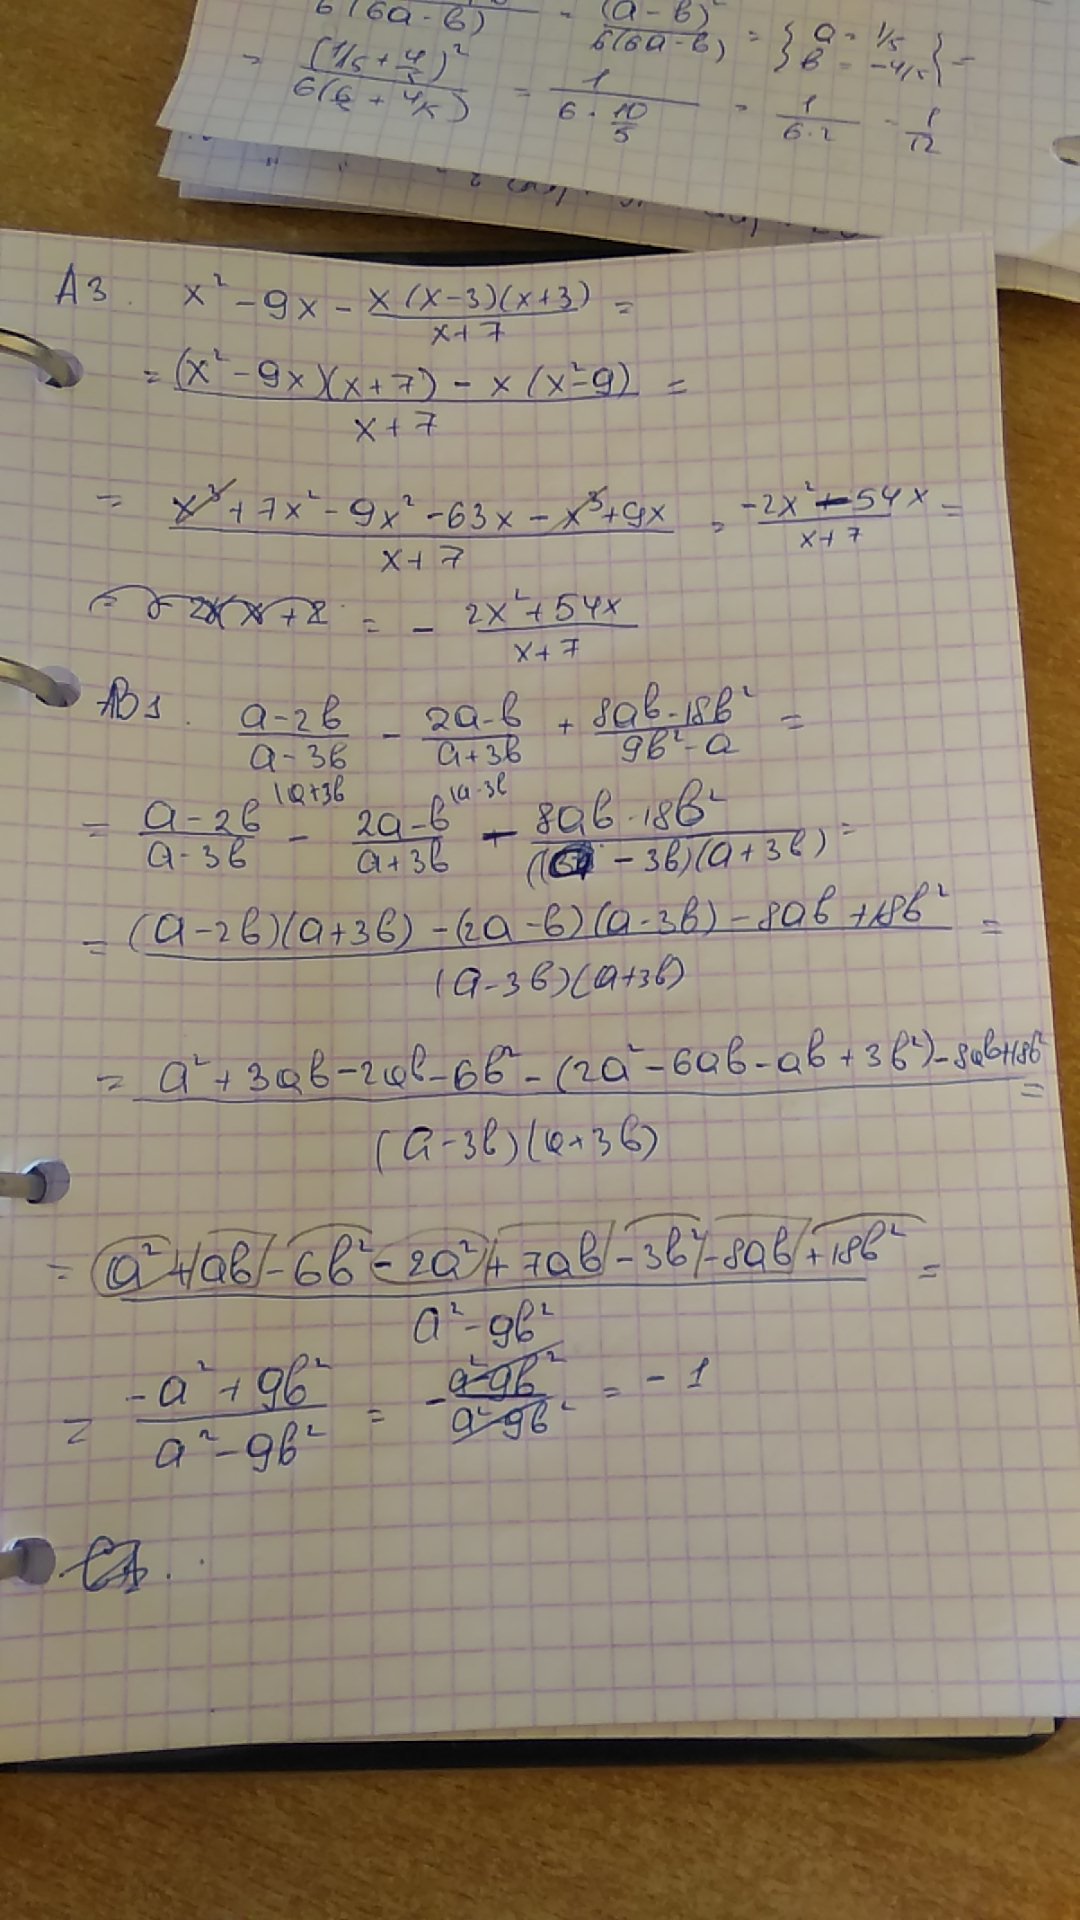 6(6a-в) = (a-в)² / 6(6a-в) = { a = 1/5 в = -4/5 } =
= (1/5 + 4/5)² / 6(6/5 + 4/5) = 1 / 6 · 10/5 = 1 / 6·2 - 1/12
A3. x² - 9x - x(x-3)(x+3) / x+7 =
= (x² - 9x)(x+7) - x(x²-9) / x+7 =
= x³ + 7x² - 9x² - 63x - x³ + 9x / x+7 = -2x² - 54x / x+7 =
= - 2x² + 54x / x+7
B1. a-2в / a-3в - 2a-в / a+3в + 8aв-18в² / 9в²-a =
= a-2в / a-3в (a+3в - 2a-в / a+3в (a-3в - 8aв-18в² / (a-3в)(a+3в) =
= (a-2в)(a+3в) - (2a-в)(a-3в) - 8aв + 18в² / (a-3в)(a+3в) =
= a² + 3aв - 2aв - 6в² - (2a² - 6aв - aв + 3в²) - 8aв + 18в² / (a-3в)(a+3в) =
= a² + aв - 6в² - 2a² + 7aв - 3в² - 8aв + 18в² / a² - 9в² =
= -a² + 9в² / a² - 9в² = - a²-9в² / a²-9в² = -1